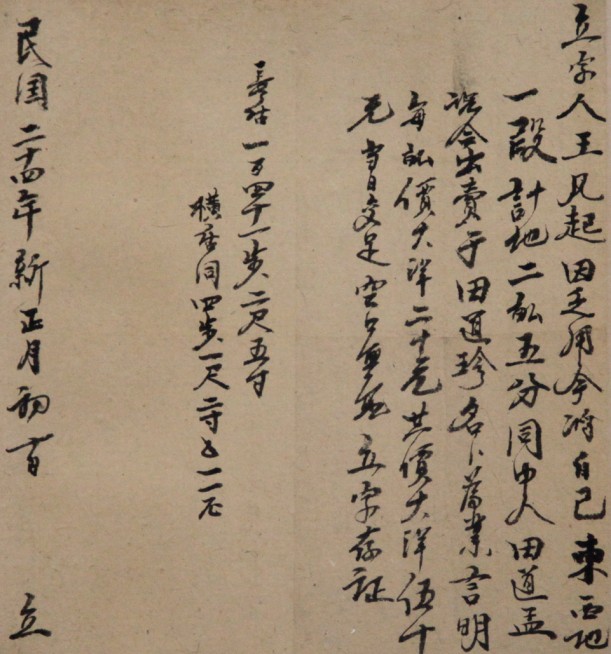 立字人王見起因乏用今將自己東西地
一段計地二畝五分同中人田道孟
說合出賣于田道珍名下為業言明
每畝價大洋二十元共價大洋伍十
元當日交足空口無憑立字存証
長活一百四十一步二尺五寸
橫活同四步一尺二寸
民国二十四年新正月初一日 立